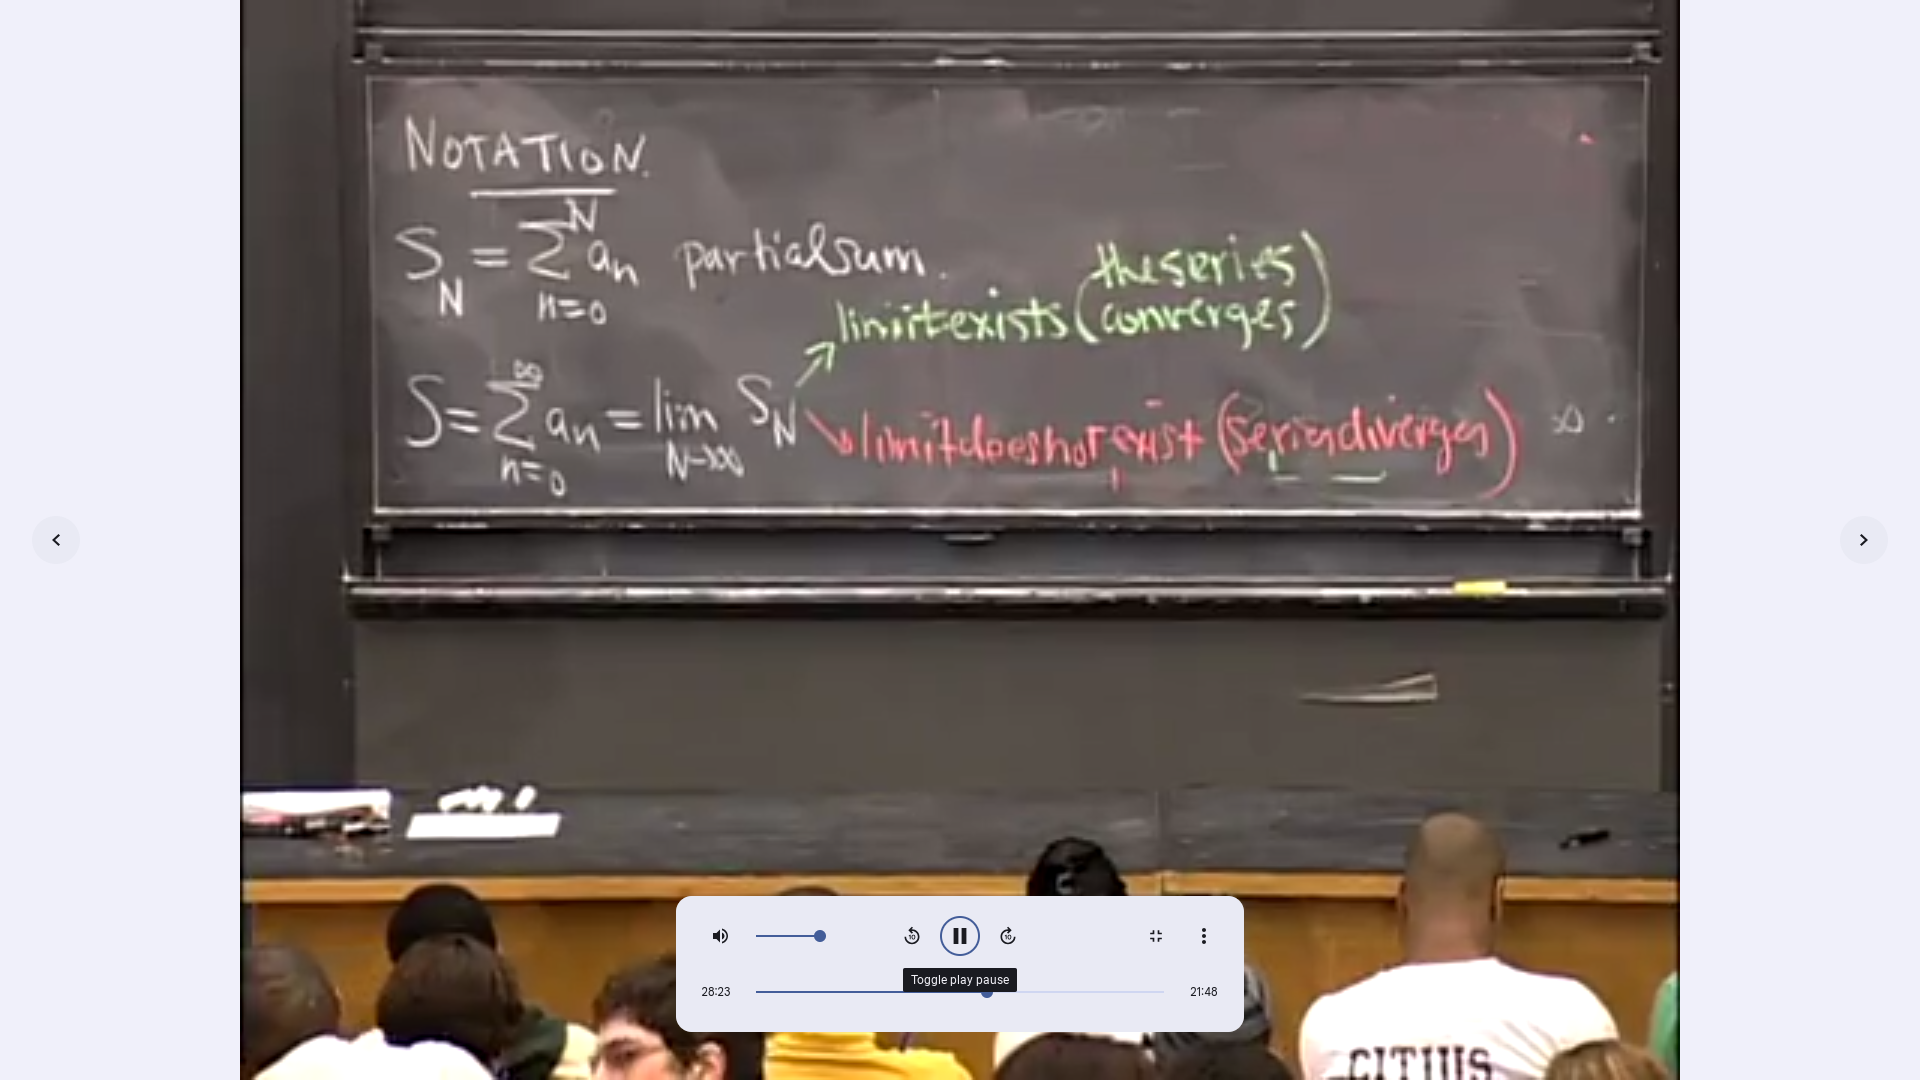 NOTATION.
S_N = \sum_{n=0}^{N} a_n partial sum.
the series
limit exists (converges)
S = \sum_{n=0}^{∞} a_n = lim_{N→∞} S_N
limit does not exist (series diverges)
10 10
Toggle play pause
28:23 21:48
CITIUS